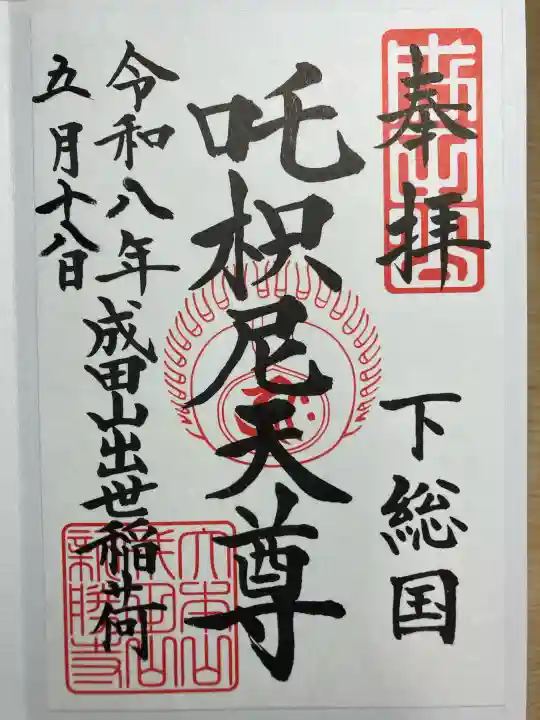 奉拝
下総国
吒枳尼天尊
令和八年
成田山出世稲荷
五月十八日
大本山
成田山
新勝寺